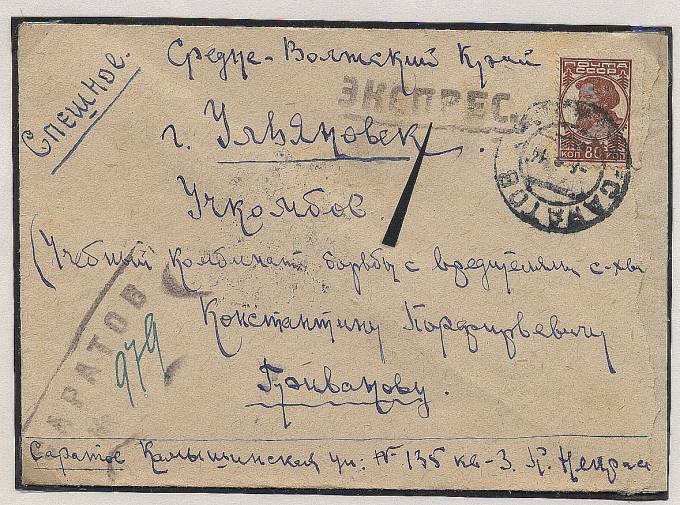 Спешное.
Средне-Волжский Край
ПОЧТА
СССР
КОП 80 КОП
ЭКСПРЕС.
г. Ульяновск.
САРАТОВ
Учкомбов.
(Учебный комбинат борьбы с вредителями с-хва
Константину Порфирьевичу
САРАТОВ
979
Саратов Камышинская ул: № 135 кв-3.